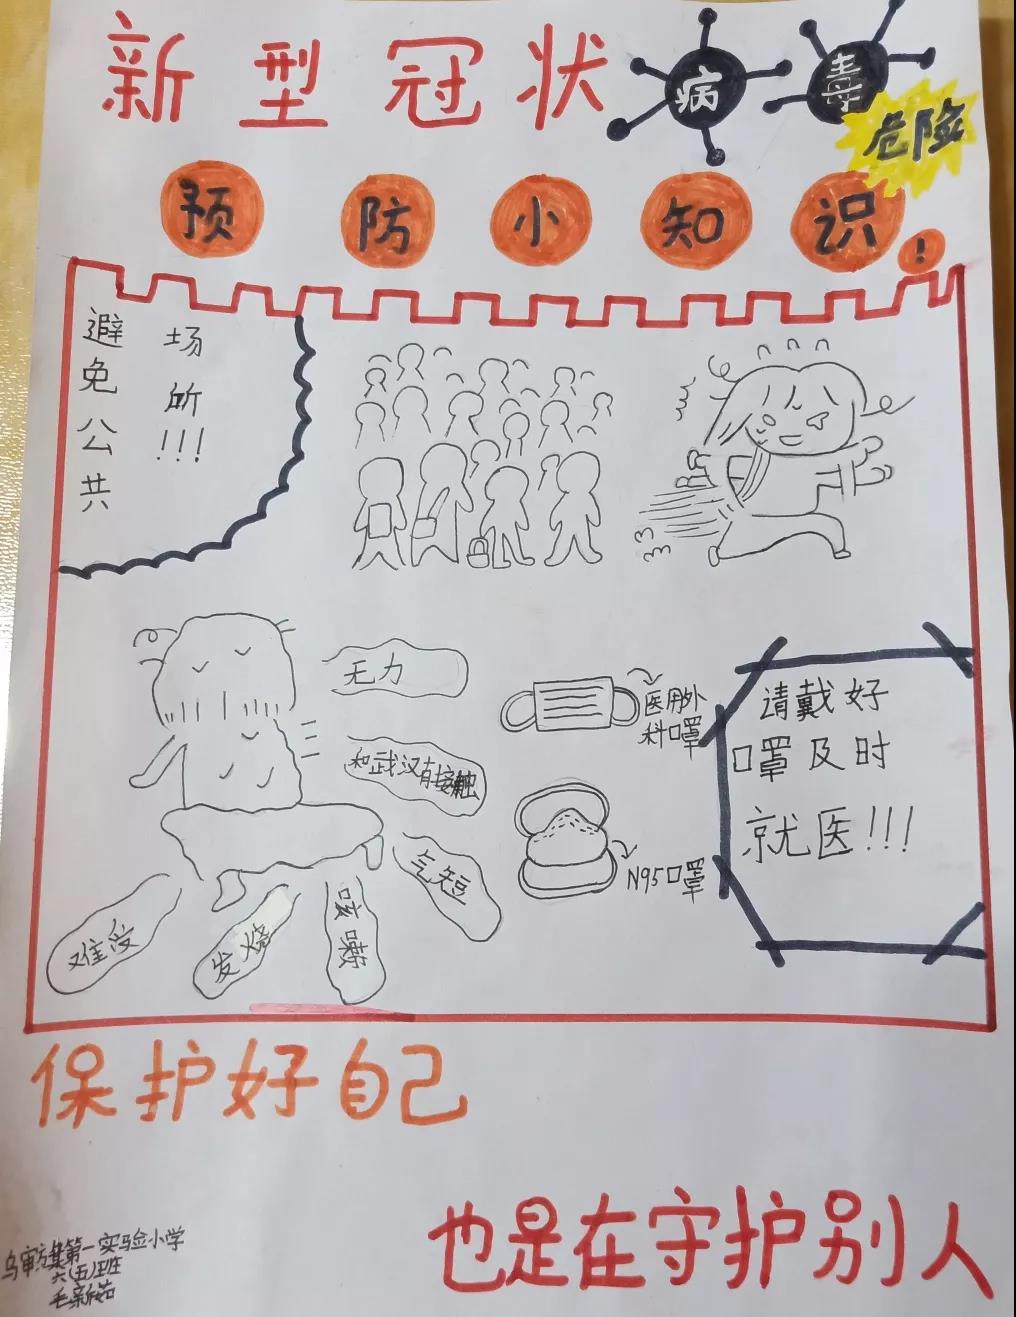 新型冠状病毒
危险
预防小知识!
避免公共
场所!!!
无力
和武汉有接触
气短
咳嗽
发烧
难受
医用外
科口罩
N95口罩
请戴好
口罩及时
就医!!!
保护好自己
也是在守护别人
乌审旗第一实验小学
六(五)班
毛新茹